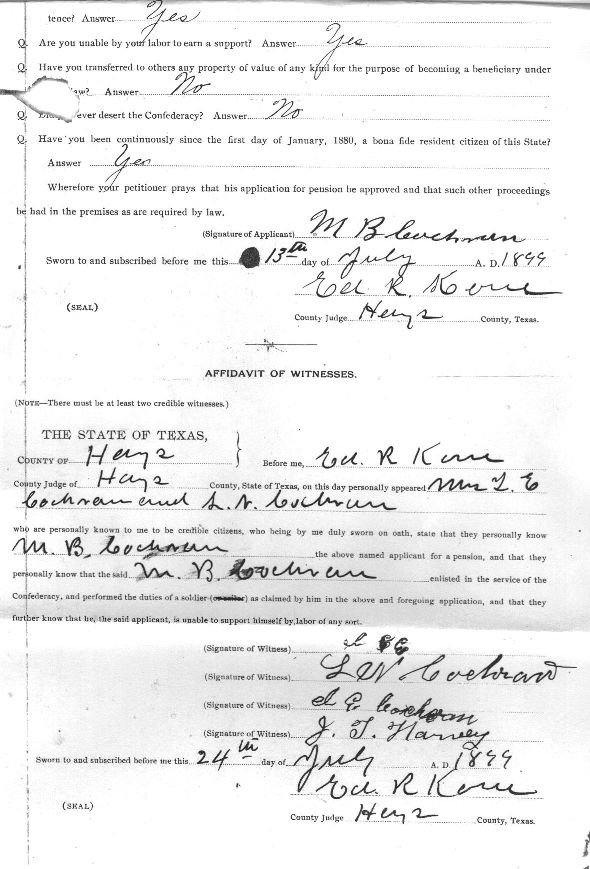 tence? Answer Yes
Q. Are you unable by your labor to earn a support? Answer Yes
Q. Have you transferred to others any property of value of any kind for the purpose of becoming a beneficiary under
law? Answer No
ever desert the Confederacy? Answer No
Q. Have you been continuously since the first day of January, 1880, a bona fide resident citizen of this State?
Answer Yes
Wherefore your petitioner prays that his application for pension be approved and that such other proceedings
be had in the premises as are required by law.
(Signature of Applicant) M B Cochran
Sworn to and subscribed before me this 13th day of July A. D. 1899
Ed R. Kone
(SEAL)
County Judge Hays County, Texas.
AFFIDAVIT OF WITNESSES.
(NOTE—There must be at least two credible witnesses.)
THE STATE OF TEXAS,
COUNTY OF Hays Before me, Ed. R Kone
County Judge of Hays County, State of Texas, on this day personally appeared Mrs L. E
Cochran and L. N. Cochran
who are personally known to me to be credible citizens, who being by me duly sworn on oath, state that they personally know
M. B. Cochran the above named applicant for a pension, and that they
personally know that the said M. B. Cochran enlisted in the service of the
Confederacy, and performed the duties of a soldier (or sailor) as claimed by him in the above and foregoing application, and that they
further know that he, the said applicant, is unable to support himself by labor of any sort.
(Signature of Witness)
(Signature of Witness) L N Cochran
(Signature of Witness) E Cochran
(Signature of Witness) J. T. Harvey
Sworn to and subscribed before me this 24th day of July A. D. 1899
Ed. R Kone
(SEAL)
County Judge Hays County, Texas.